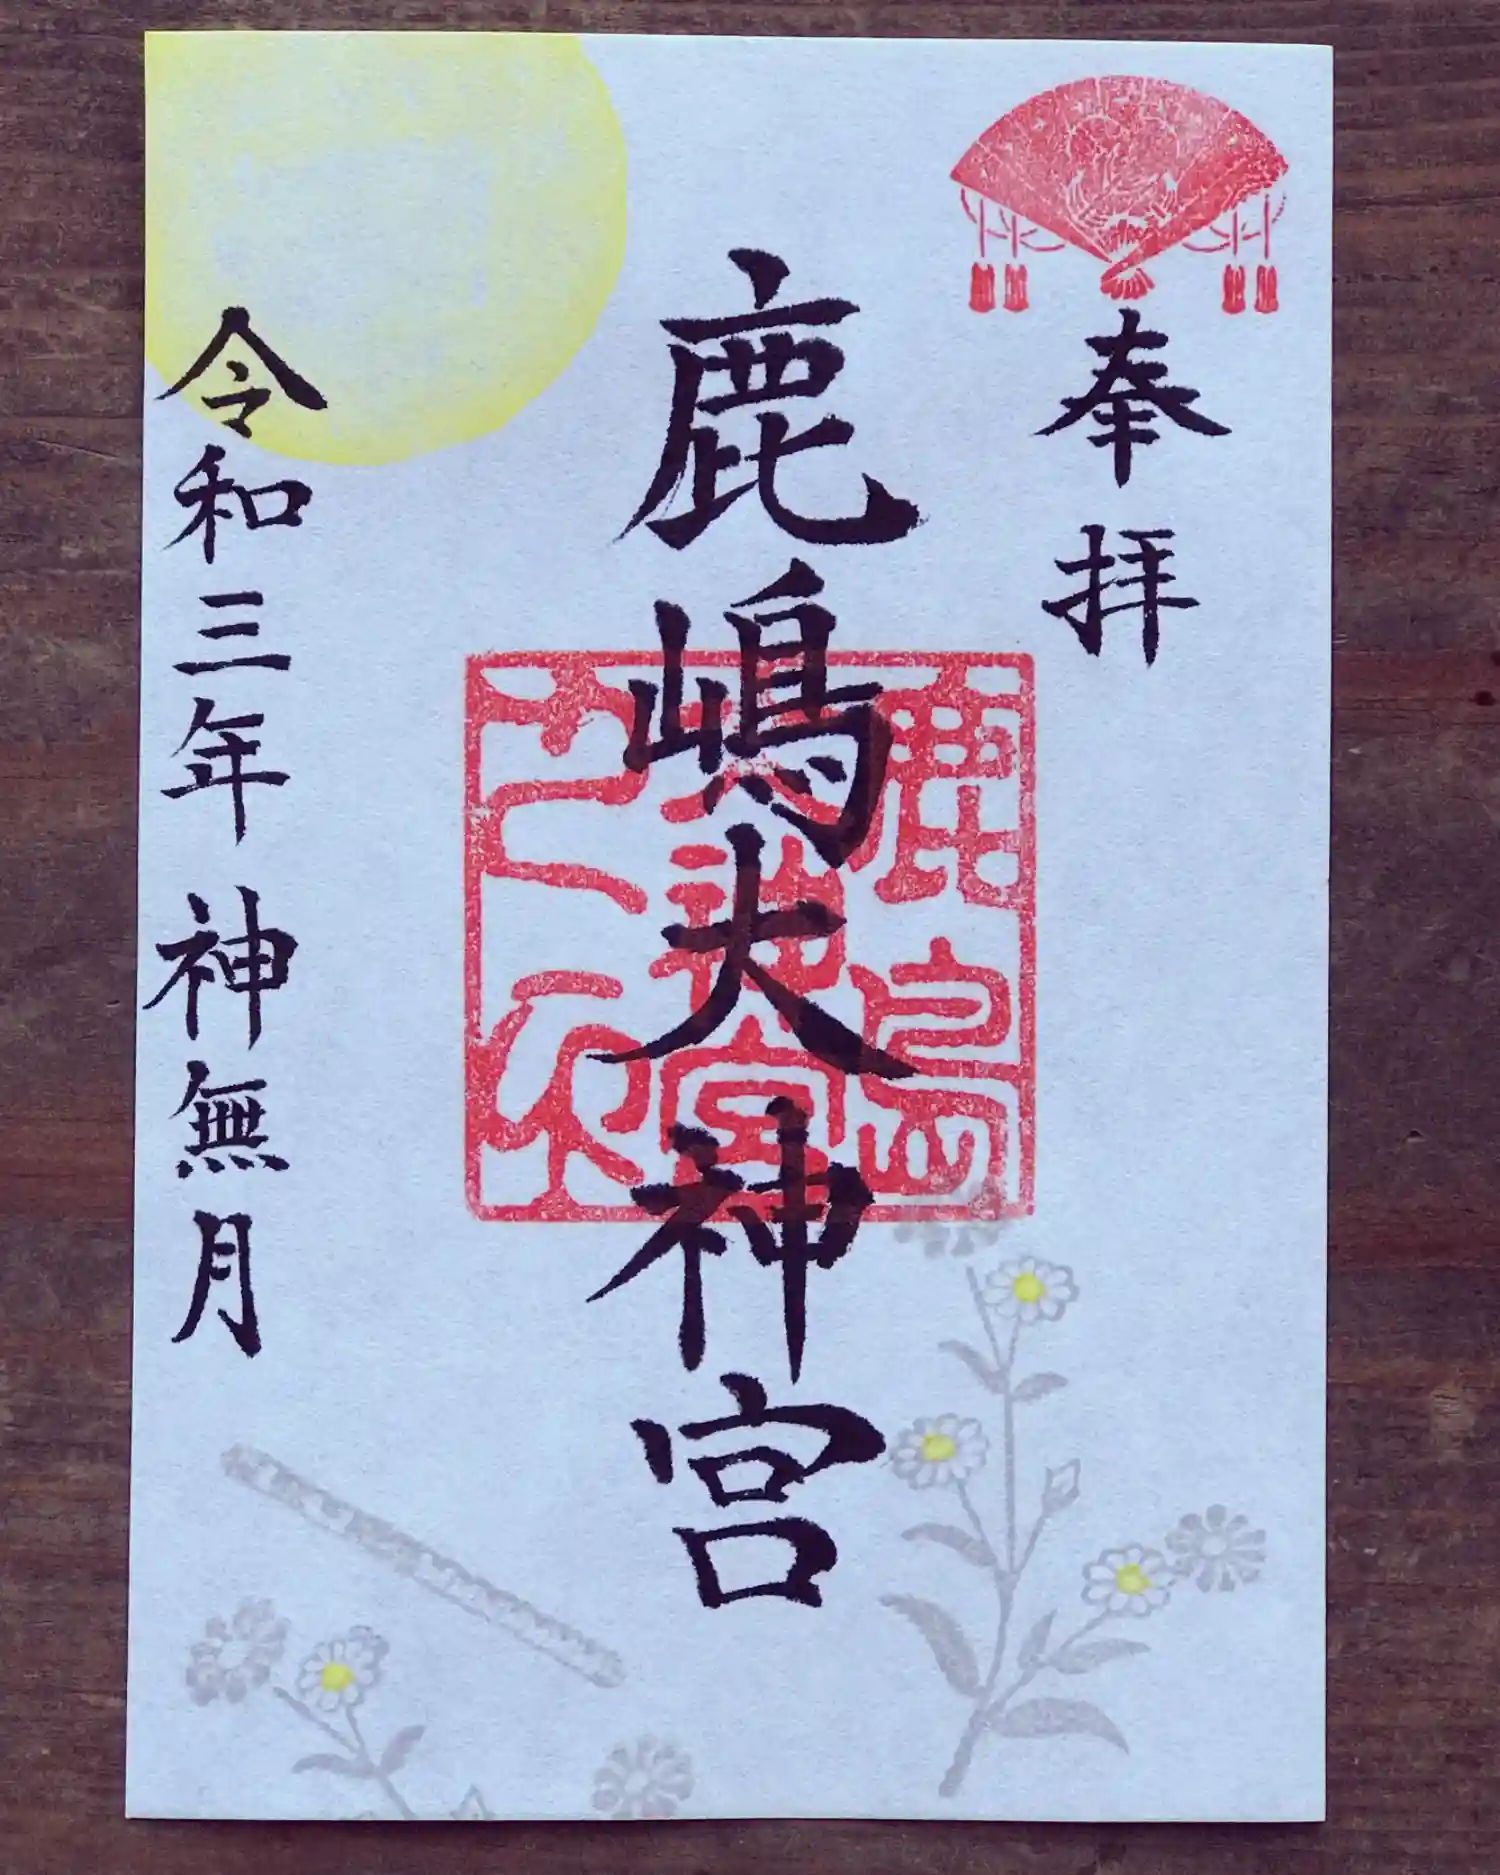 奉拝
鹿嶋大神宮
鹿島
大神宮
令和三年 神無月